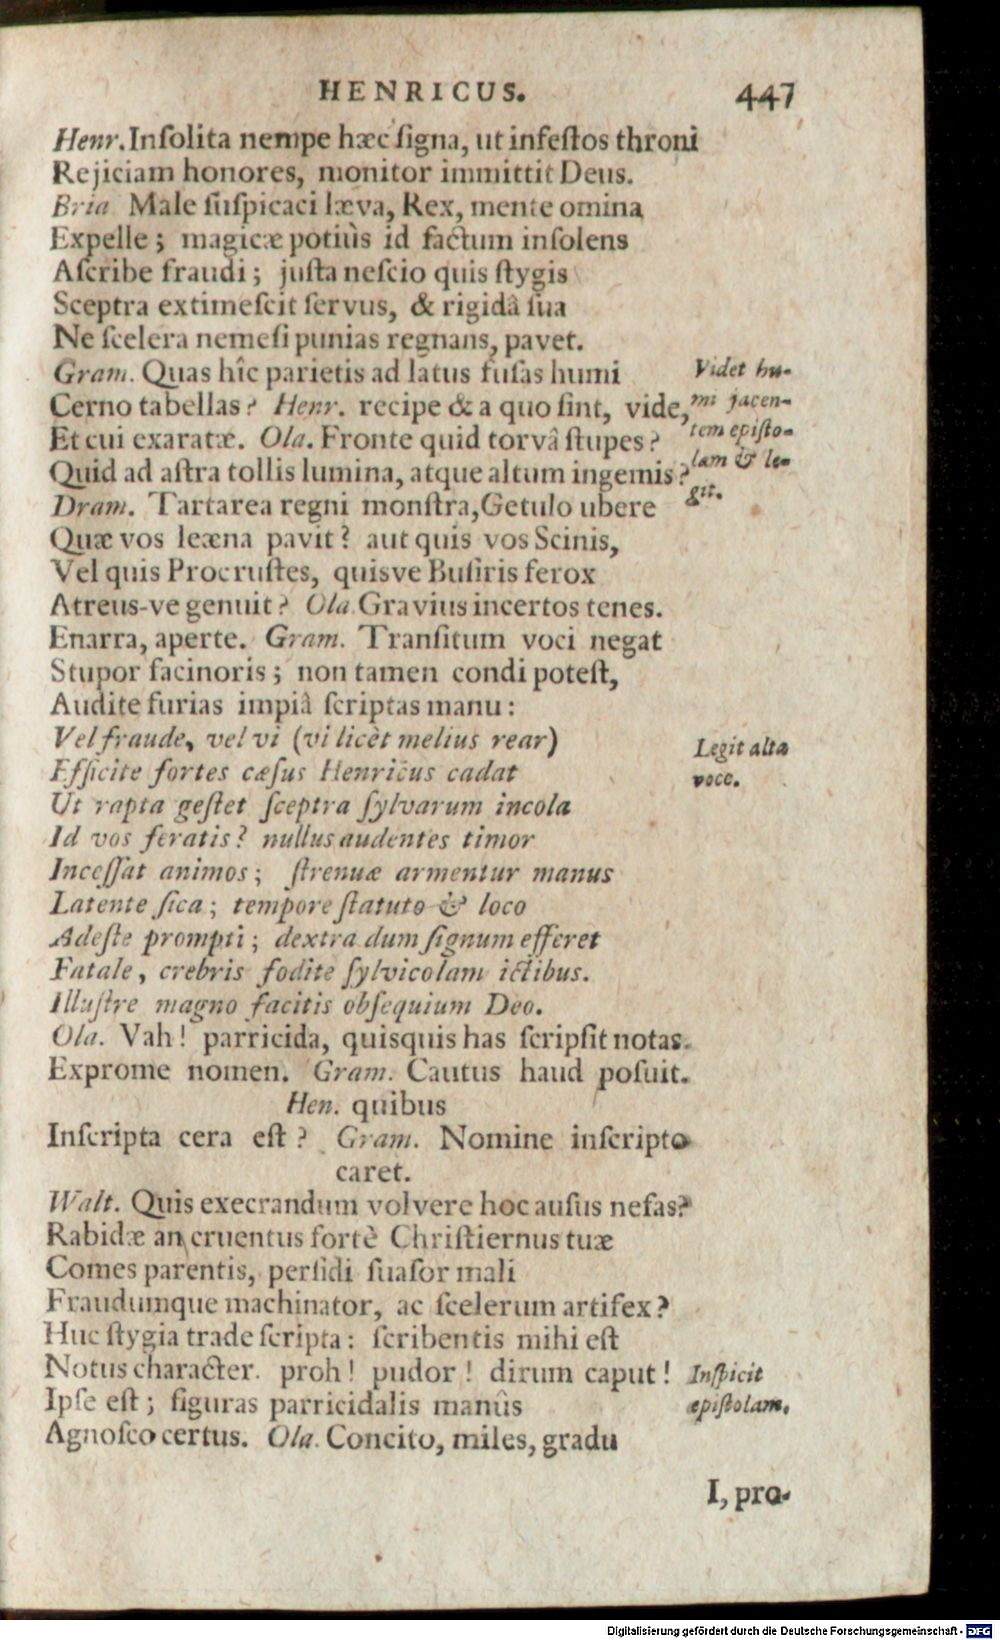 HENRICUS. 447
Henr. Inſolita nempe hæc ſigna, ut infeſtos throni
Rejiciam honores, monitor immittit Deus.
Bria Male ſuſpicaci læva, Rex, mente omina
Expelle; magicæ potiùs id factum inſolens
Aſcribe fraudi; juſta neſcio quis ſtygis
Sceptra extimeſcit ſervus, & rigidâ ſua
Ne ſcelera nemeſi punias regnans, pavet.
Gram. Quas hîc parietis ad latus fuſas humi
Cerno tabellas? Henr. recipe & a quo ſint, vide,
Et cui exaratæ. Ola. Fronte quid torvâ ſtupes?
Quid ad aſtra tollis lumina, atque altum ingemis?
Videt hu-
mi jacen-
tem epiſto-
lam & le-
git.
Dram. Tartarea regni monſtra, Getulo ubere
Quæ vos leæna pavit? aut quis vos Scinis,
Vel quis Procruſtes, quisve Buſiris ferox
Atreus-ve genuit? Ola. Gravius incertos tenes.
Enarra, aperte. Gram. Tranſitum voci negat
Stupor facinoris; non tamen condi poteſt,
Audite furias impiâ ſcriptas manu:
Vel fraude, vel vi (vi licèt melius rear)
Efficite fortes cæſus Henricus cadat
Legit alta
voce.
Ut rapta geſtet ſceptra ſylvarum incola
Id vos feratis? nullus audentes timor
Inceſſat animos; ſtrenuæ armentur manus
Latente ſica; tempore ſtatuto & loco
Adeſte prompti; dextra dum ſignum efferet
Fatale, crebris fodite ſylvicolam ictibus.
Illuſtre magno facitis obſequium Deo.
Ola. Vah! parricida, quisquis has ſcripſit notas.
Exprome nomen. Gram. Cautus haud poſuit.
Hen. quibus
Inſcripta cera eſt? Gram. Nomine inſcripto
caret.
Walt. Quis execrandum volvere hoc auſus nefas?
Rabidæ an cruentus fortè Chriſtiernus tuæ
Comes parentis, perfidi ſuaſor mali
Fraudumque machinator, ac ſcelerum artifex?
Huc ſtygia trade ſcripta: ſcribentis mihi eſt
Notus character. proh! pudor! dirum caput!
Ipſe eſt; figuras parricidalis manûs
Inſpicit
epiſtolam.
Agnoſco certus. Ola. Concito, miles, gradu
I, pro-
Digitalisierung gefördert durch die Deutsche Forschungsgemeinschaft - DFG